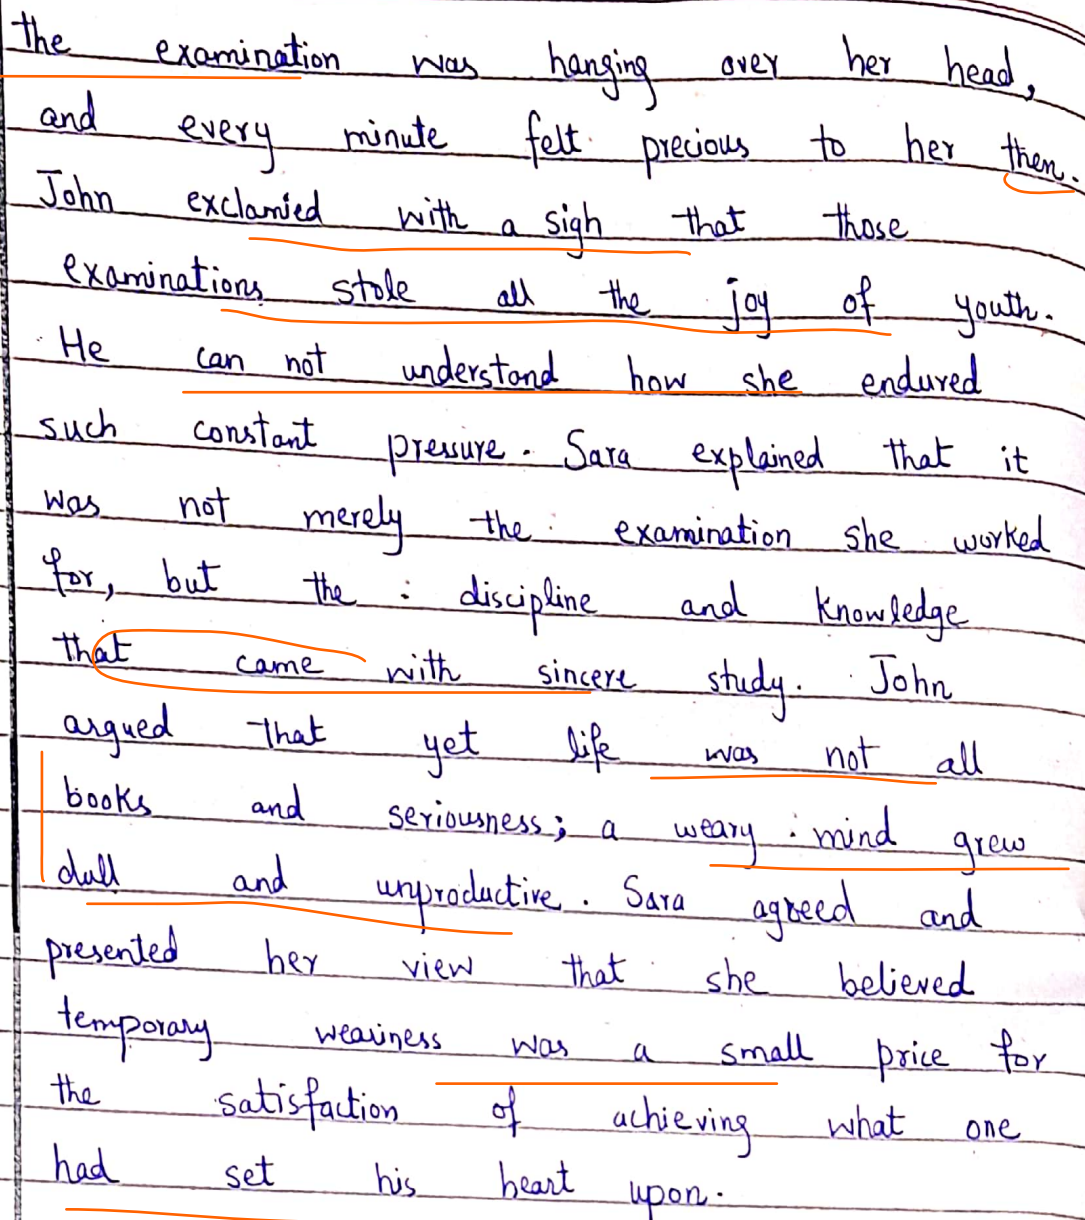 the examination was hanging over her head,
and every minute felt precious to her then.
John exclamied with a sigh that those
examinations stole all the joy of youth.
He can not understand how she endured
such constant pressure. Sara explained that it
was not merely the examination she worked
for, but the : discipline and knowledge
that came with sincere study. John
argued that yet life was not all
books and seriousness; a weary mind grew
dull and unproductive. Sara agreed and
presented her view that she believed
temporary weariness was a small price for
the satisfaction of achieving what one
had set his heart upon.